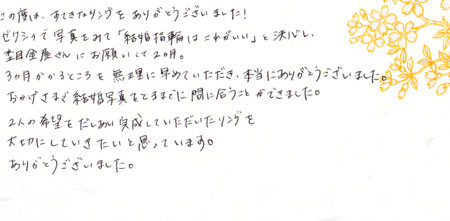 この度は、すてきなリングをありがとうございました!
ゼクシィで写真をみて「結婚指輪はこれがいい」と決心し、
杢目金屋さんにお願いして2ヶ月。
3ヶ月かかるところを無理に早めていただき、本当にありがとうございました。
おかげさまで結婚写真をとるまでに間に合うことができました。
2人の希望をだしあい完成していただいたリングを
大切にしていきたいと思っています。
ありがとうございました。